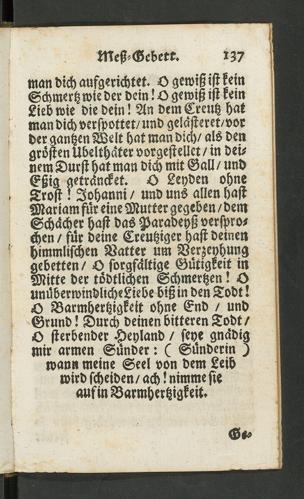 Meß-Gebett. 137
man dich aufgerichtet. O gewiß ist kein
Schmertz wie der dein! O gewiß ist kein
Lieb wie die dein! An dem Creutz hat
man dich verspottet/ und gelästeret/ vor
der gantzen Welt hat man dich/ als den
grösten Ubelthäter vorgestellet/ in dei-
nem Durst hat man dich mit Gall/ und
Eßig getråncket. O Leyden ohne
Trost! Johanni/ und uns allen hast
Mariam für eine Mutter gegeben/ dem
Schächer hast das Paradeyß verspro-
chen/ für deine Creutziger hast deinen
himmlischen Vatter um Verzeyhung
gebetten/ O sorgfältige Gütigkeit in
Mitte der tödtlichen Schmertzen! O
unüberwindliche Liebe biß in den Todt!
O Barmhertzigkeit ohne End/ und
Grund! Durch deinen bitteren Todt/
O sterbender Heyland/ seye gnådig
mir armen Sünder: (Sünderin)
wann meine Seel von dem Leib
wird scheiden/ ach! nimme sie
auf in Barmhertzigkeit.
Ge-